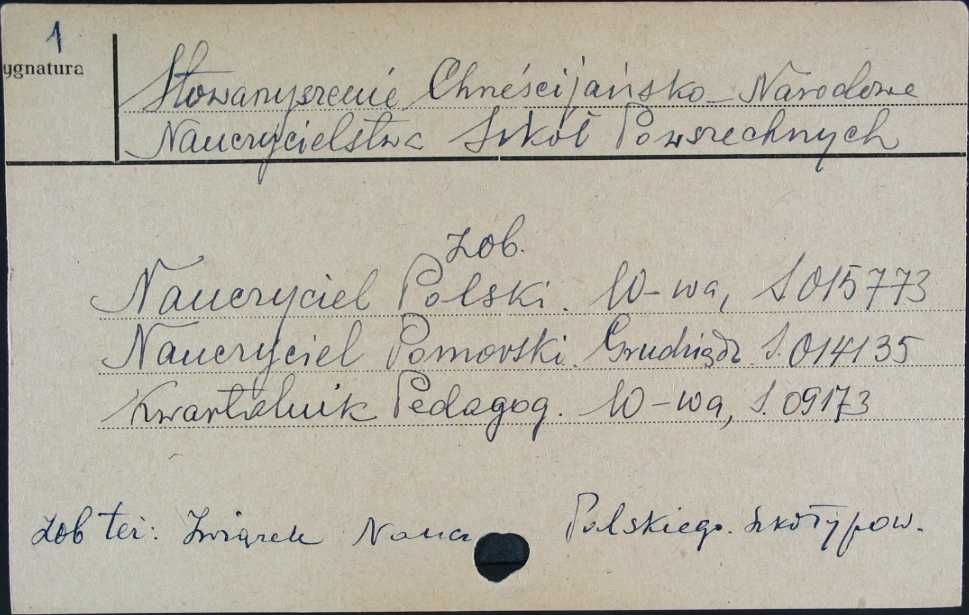 1
ygnatura
Stowarzyszenie Chrześcijańsko-Narodowe
Nauczycielstwa Szkół Powszechnych
zob.
Nauczyciel Polski. W-wa, S.015773
Nauczyciel Pomorski. Grudziądz. S.014135
Kwartalnik Pedagog. W-wa, S.09173
Zob też: Związek Naucz Polskiego. Szkoły pow.